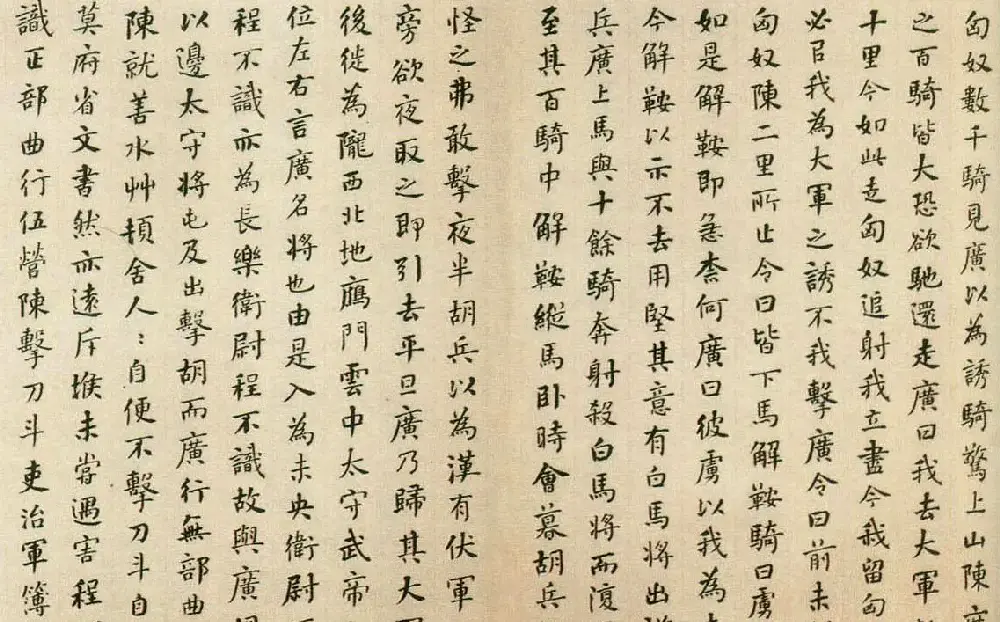 匈奴數千騎見廣以為誘騎驚上山陳
之百騎皆大恐欲馳還走廣曰我去大軍
十里今如此走匈奴追射我立盡今我留匈
必㠯我為大軍之誘不我擊廣令曰前未
匈奴陳二里所止令曰皆下馬解鞍騎曰虜
如是解鞍即急柰何廣曰彼虜以我為
今解鞍以示不去用堅其意有白馬將出
兵廣上馬與十餘騎奔射殺白馬將而復
至其百騎中解鞍縱馬卧時會暮胡兵
怪之弗敢擊夜半胡兵以為漢有伏軍
旁欲夜取之即引去平旦廣乃歸其大
後徙為隴西北地鴈門雲中太守武帝
位左右言廣名將也由是入為未央衛尉
程不識亦為長樂衛尉程不識故與廣
以邊太守將屯及出擊胡而廣行無部曲
陳就善水艸頓舍人〻自便不擊刀斗自
莫府省文書然亦遠斥堠未嘗遇害程
識正部曲行伍營陳擊刀斗吏治軍簿